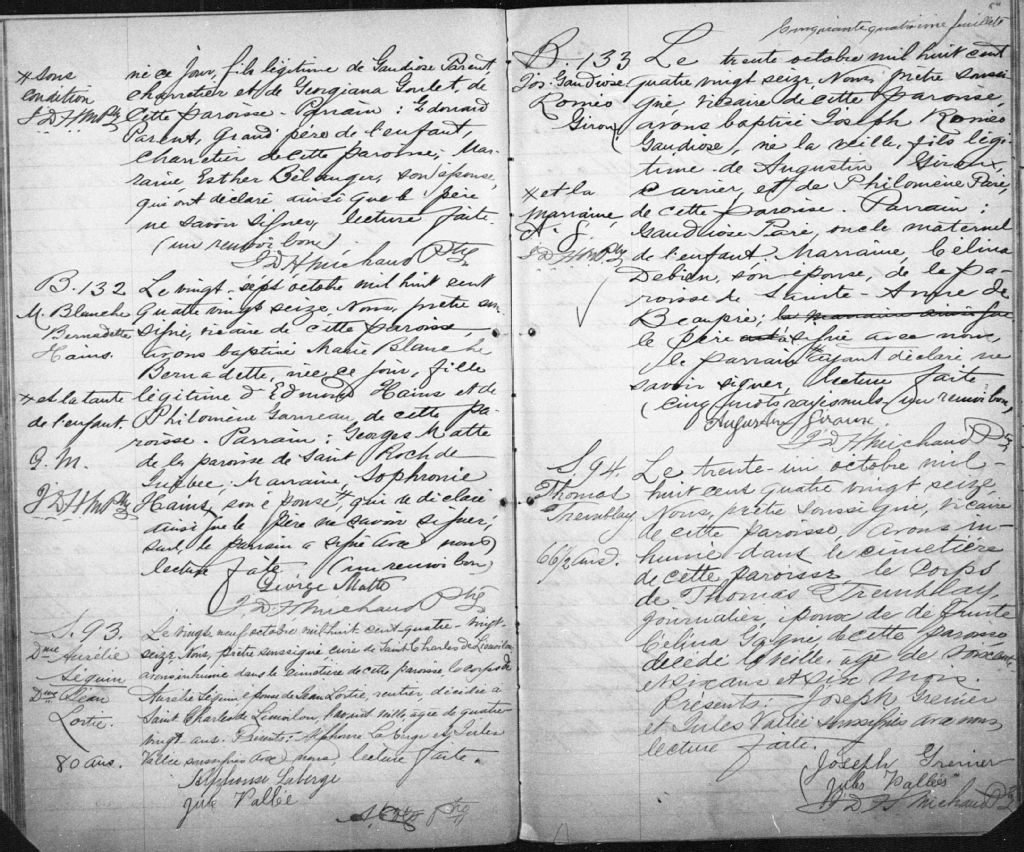 né ce jour, fils légitime de Gaudiose Parent,
* sous charretier et de Georgiana Goulet, de
condition cette paroisse - Parrain : Edouard
J D H M Ptre Parent, grand père de l'enfant,
charretier de cette paroisse; Mar-
raine, Esther Bélanger, son épouse,
qui ont déclaré ainsi que le père
ne savoir signer, lecture faite
(un renvoi bon)
J D H Michaud Ptre
B. 132 Le vingt-sept octobre mil huit cent
M. Blanche quatre vingt seize, Nous, prêtre sous
Bernadette signé, vicaire de cette paroisse,
Hains. avons baptisé Marie Blanche
Bernadette, née ce jour, fille
* et la tante légitime d'Edmond Hains et de
de l'enfant. Philomène Garneau, de cette pa-
roisse - Parrain : Georges Matte
G. M. de la paroisse de Saint Roch de
Québec, Marraine, Sophronie
J D H M Ptre Hains, son épouse*, qui a déclaré
ainsi que le père ne savoir signer;
seul, le parrain a signé avec nous,
lecture faite (un renvoi bon)
George Matte
J. D. H Michaud Ptre
S. 93. Le vingt-neuf octobre mil huit-cent-quatre-vingt-
Dme Aurélie seize, Nous, prêtre soussigné curé de Saint Charles de Limoilou
Seguin avons inhumé dans le cimetière de cette paroisse, le corps de
Dme Jean Aurélie Séguin épouse de Jean Lortie, rentier, décédée à
Lortie. Saint Charles de Limoilou, âgée de quatre
vingt ans. Présents :- Alphonse Laberge et Jules
80 ans. Vallée soussignés avec nous lecture faite.
Alphonse Laberge
Jule Vallée
Ptre
Cinquante quatrième feuillet
B. 133 Le trente octobre mil huit cent
Jos. Gaudiose quatre vingt seize, Nous, prêtre soussi-
Roméo gné, vicaire de cette paroisse,
Giroux avons baptisé Joseph Roméo
Gaudiose, né la veille, fils légi-
time de Augustin Giroux,
* et la carrier, et de Philomène Paré,
marraine, de cette paroisse. Parrain :
A. G. Gaudiose Paré, oncle maternel
J D H M Ptre de l'enfant. Marraine, Célina
Debien, son épouse, de la pa-
roisse de Sainte-Anne de
Beaupré; la marraine ainsi que
le père a signé avec nous,
le parrain* ayant déclaré ne
savoir signer, lecture faite.
(cinq mots rayés nuls - un renvoi bon)
Augustin Giroux
J D H Michaud Ptre
S. 94. Le trente-un octobre mil
Thomas huit cent quatre vingt seize,
Tremblay Nous, prêtre soussigné, vicaire
de cette paroisse, avons in-
66½ ans. humé dans le cimetière
de cette paroisse, le corps
de Thomas Tremblay,
journalier, époux de défunte
Célina Gagné de cette paroisse
décédé la veille, âgé de soixante
et six ans et six mois.
Présents : Joseph Grenier
et Jules Vallée soussignés avec nous,
lecture faite.
Joseph Grenier
Jules Vallée
J D H Michaud Ptre